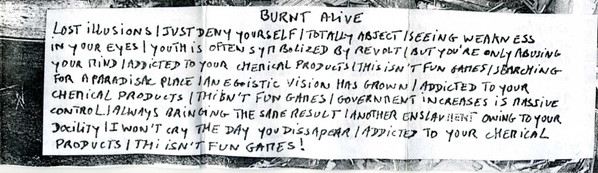 BURNT ALIVE
LOST ILLUSIONS / JUST DENY YOURSELF / TOTALLY ABJECT / SEEING WEAKNESS
IN YOUR EYES / YOUTH IS OFTEN SYMBOLIZED BY REVOLT / BUT YOU'RE ONLY ABUSING
YOUR MIND / ADDICTED TO YOUR CHEMICAL PRODUCTS / THIS ISN'T FUN GAMES / SEARCHING
FOR A PARADISAC PLACE / AN EGOISTIC VISION HAS GROWN / ADDICTED TO YOUR
CHEMICAL PRODUCTS / THI ISN'T FUN GAMES / GOVERNMENT INCREASES IS MASSIVE
CONTROL / ALWAYS BRINGING THE SAME RESULT / ANOTHER ENSLAVMENT OWING TO YOUR
DOCILITY / I WON'T CRY THE DAY YOU DISSAPEAR / ADDICTED TO YOUR CHEMICAL
PRODUCTS / THI ISN'T FUN GAMES!